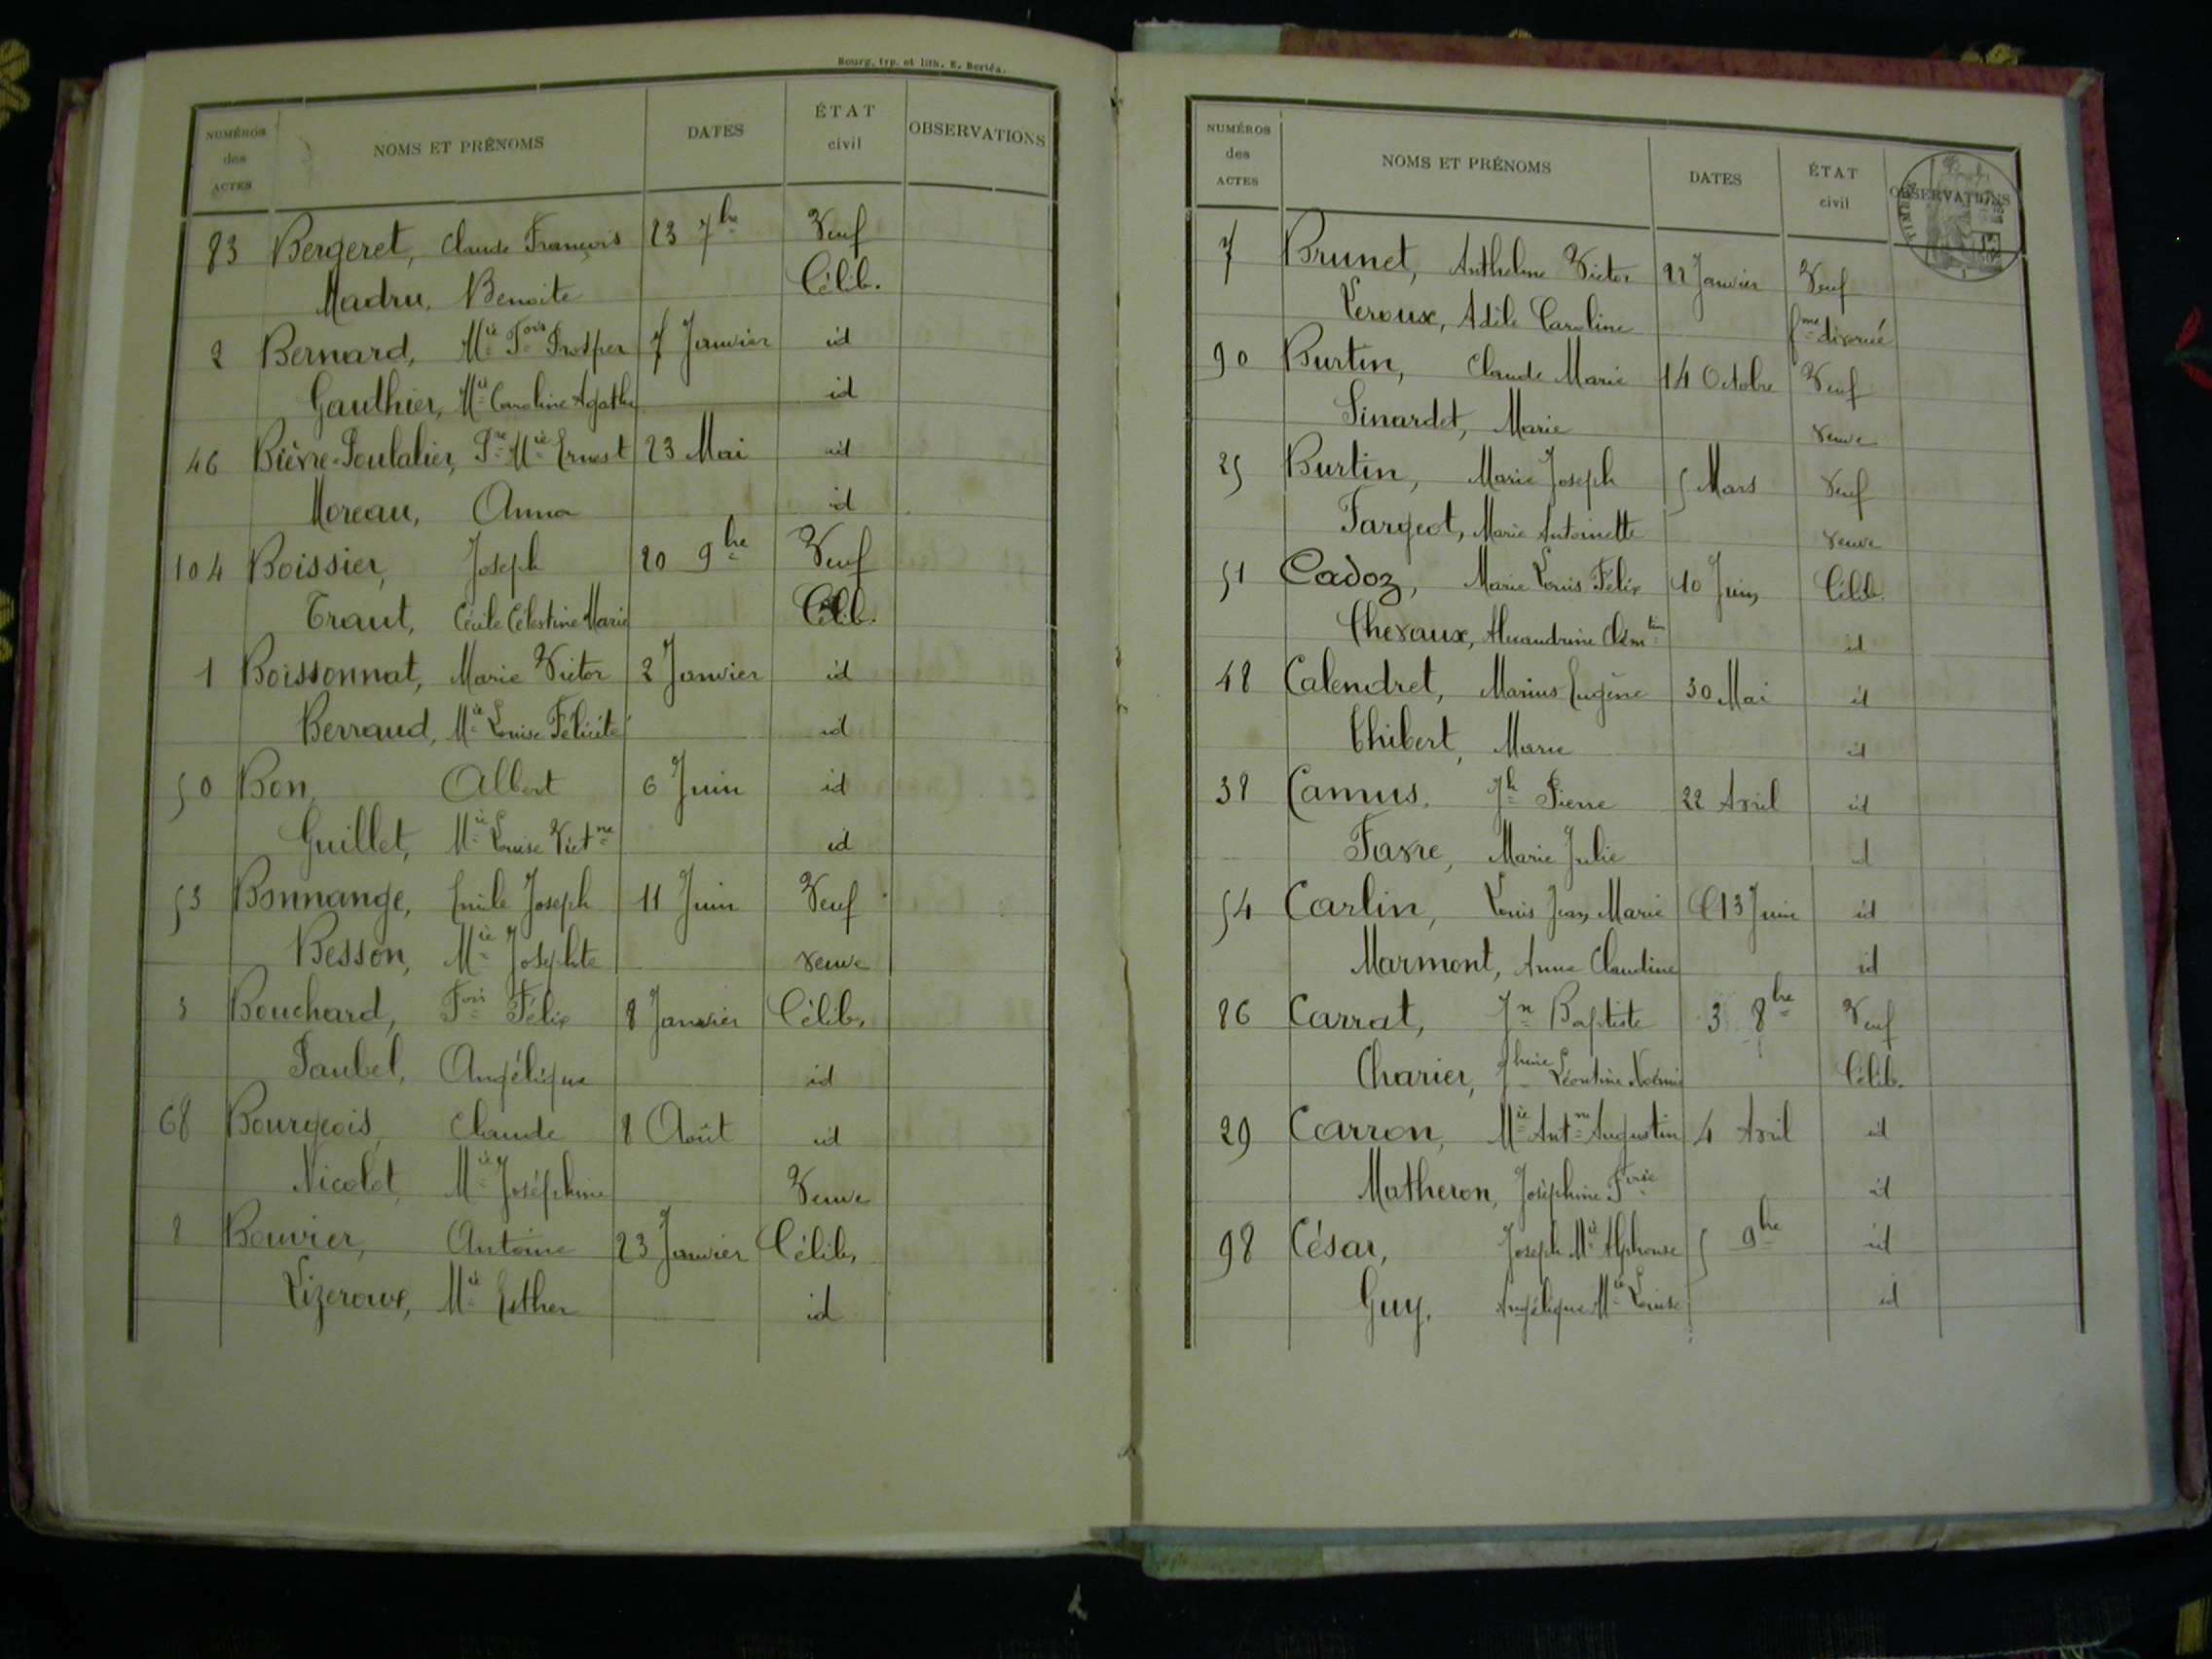 Bourg, typ. et lith. E. Bertéa.
NUMÉROS des ACTES NOMS ET PRÉNOMS DATES ÉTAT civil OBSERVATIONS
83 Bergeret, Claude François 23 7bre Veuf
Madru, Benoite Célib.
2 Bernard, Mie Fois Prosper 7 Janvier id
Gauthier, Mie Caroline Agathe id
46 Bièvre-Poulalier, Pre Mie Ernest 23 Mai id
Moreau, Anna id
104 Boissier, Joseph 20 9bre Veuf
Traut, Cécile Célestine Marie Célib.
1 Boissonnat, Marie Victor 2 Janvier id
Berraud, Mie Louise Félicité id
50 Bon, Albert 6 Juin id
Guillet, Mie Louise Victne id
53 Bonnange, Emile Joseph 11 Juin Veuf
Besson, Mie Josephte veuve
3 Bouchard, Fois Félix 8 Janvier Célib.
Paubel, Angélique id
68 Bourgeois, Claude 8 Août id
Nicolet, Mie Joséphine Veuve
8 Bouvier, Antoine 23 Janvier Célib.
Lizeroux, Mie Esther id
NUMÉROS des ACTES NOMS ET PRÉNOMS DATES ÉTAT civil OBSERVATIONS
7 Brunet, Anthelme Victor 22 Janvier Veuf
Leroux, Adèle Caroline fme divorcé
90 Burtin, Claude Marie 14 Octobre Veuf
Sinardet, Marie veuve
25 Burtin, Marie Joseph 5 Mars veuf
Fargeot, Marie Antoinette veuve
51 Cadoz, Marie Louis Félix 10 Juin Célib.
Chevaux, Alexandrine Clémtine id
48 Calendret, Marius Eugène 30 Mai id
Thibert, Marie id
38 Camus, Jh Pierre 22 Avril id
Favre, Marie Julie id
54 Carlin, Louis Jean Marie 13 Juin id
Marmont, Anne Claudine id
86 Carrat, Jn Baptiste 3 8bre Veuf
Charier, Jhine Léontine Noémie Célib.
29 Carron, Mie Antne Augustin 4 Avril id
Matheron, Joséphine Foise id
98 César, Joseph Mie Alphonse 5 9bre id
Guy, Angélique Mie Louise id